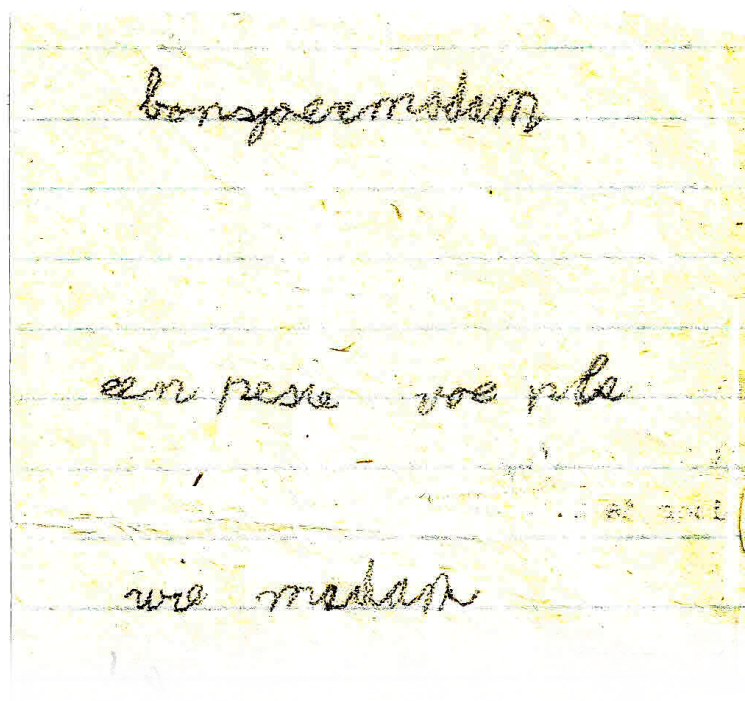 bonsjoermadam
een pesie voe ple
wie madam